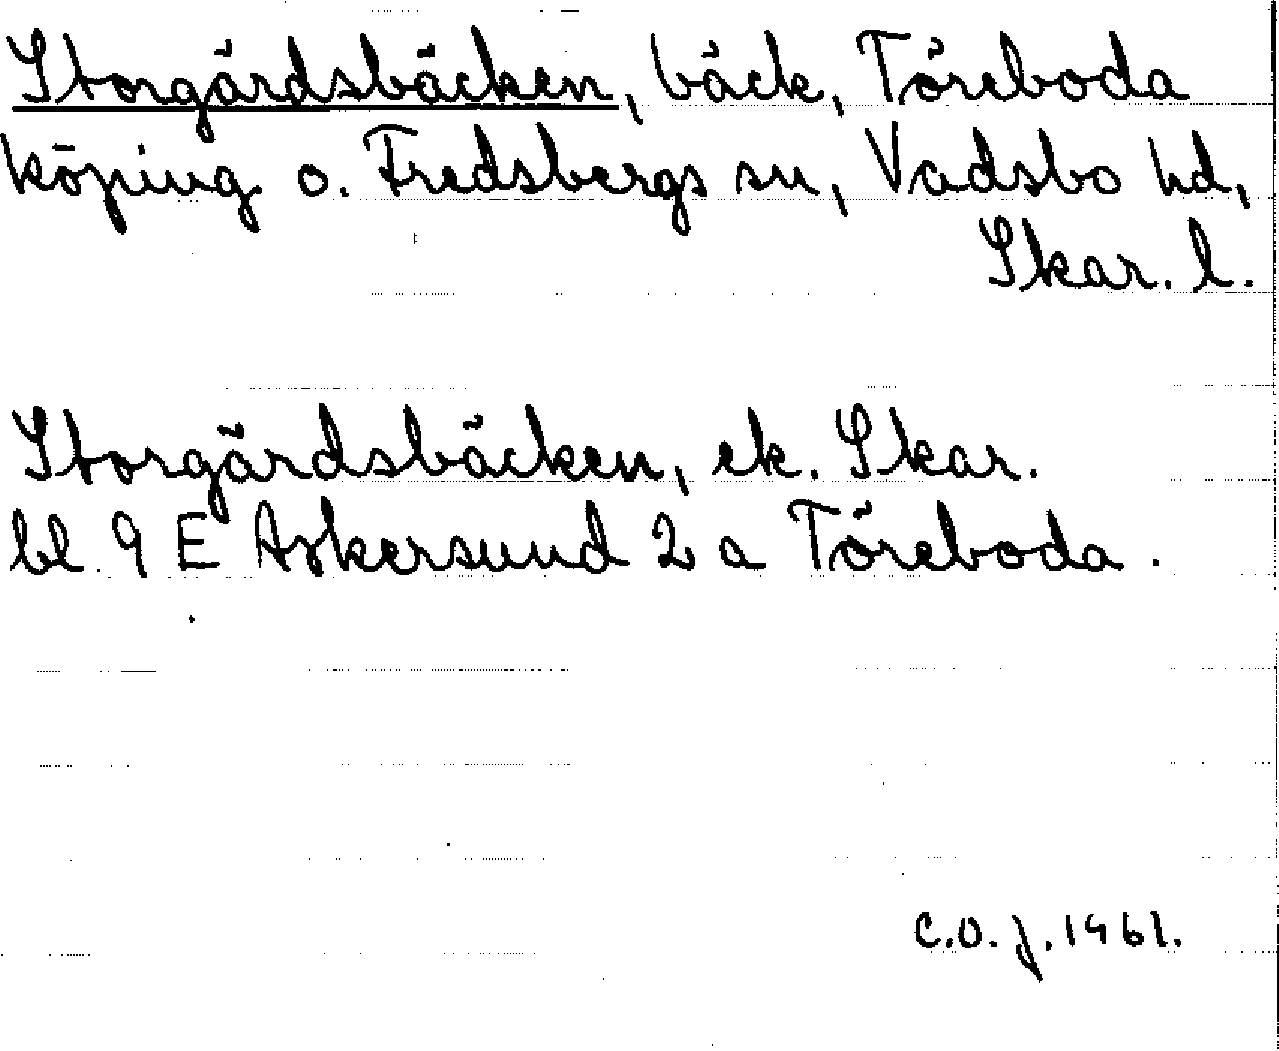 Storgårdsbäcken, bäck, Töreboda
köping o. Fredsbergs sn, Vadsbo hd,
Skar. l.
Storgårdsbäcken, ek. Skar.
bl. 9 E Askersund 2 a Töreboda.
C.O.J. 1961.